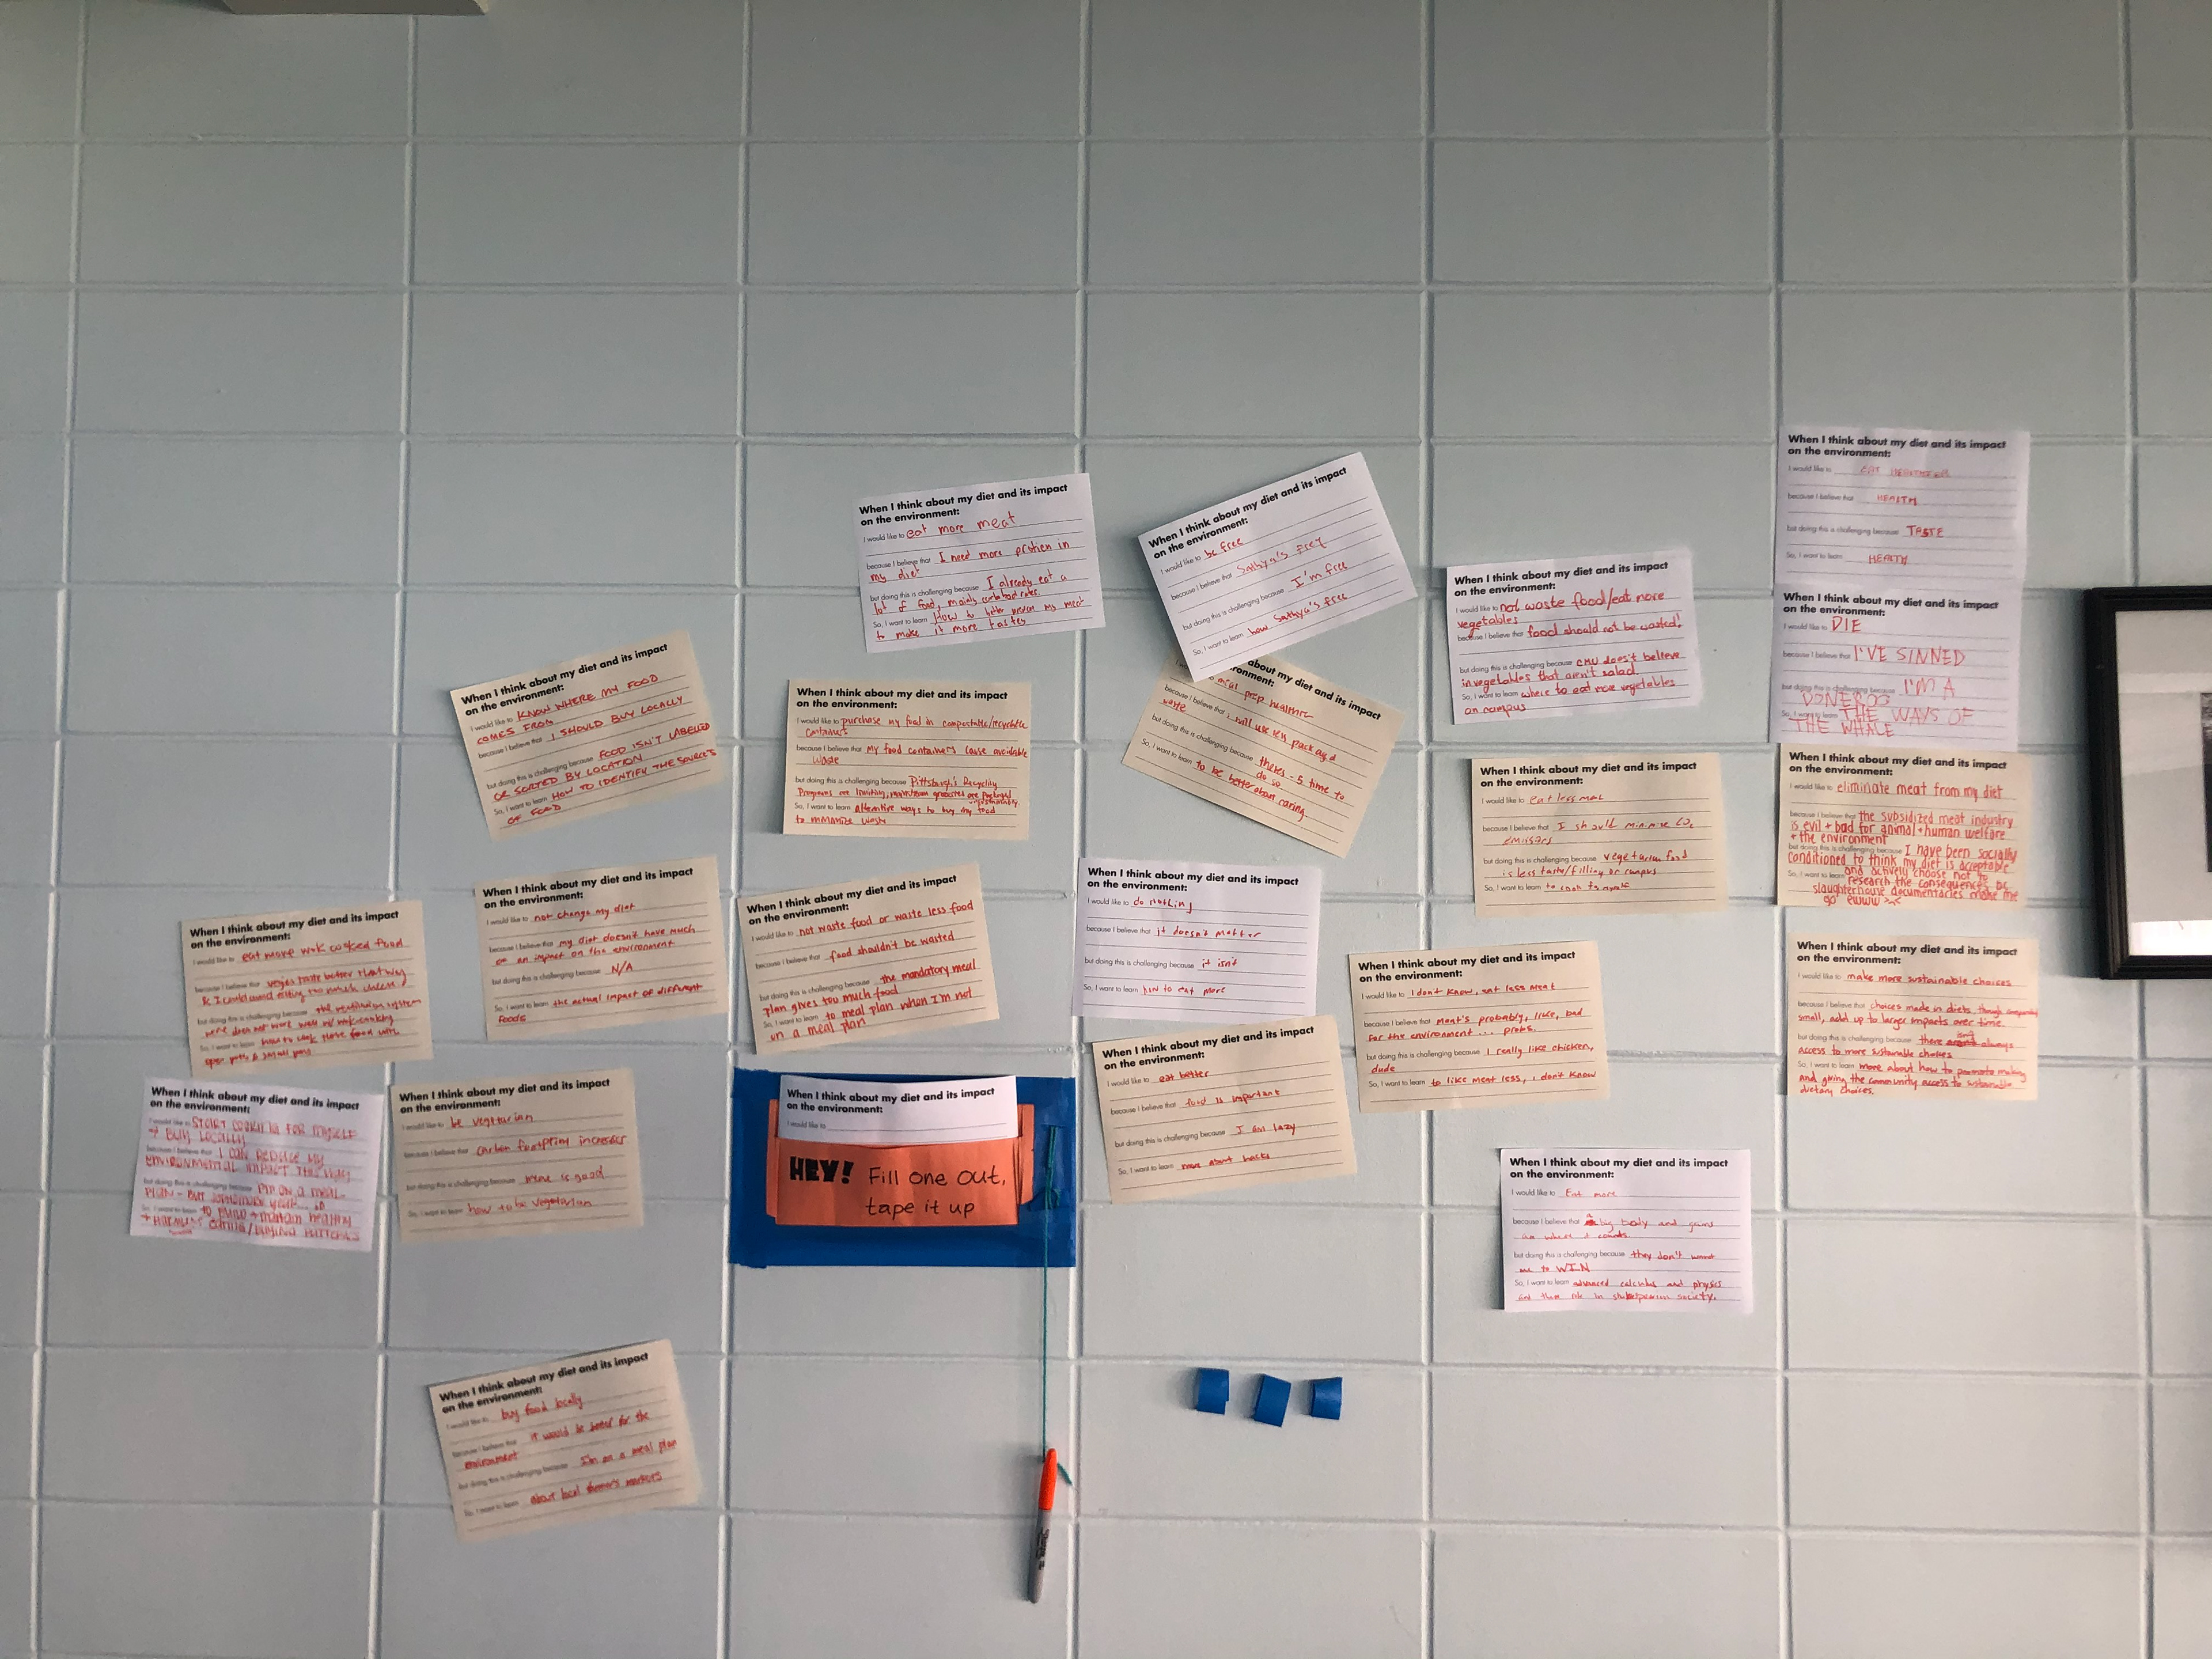 When I think about my diet and its impact
on the environment:
I would like to EAT HEALTHIER
because I believe that HEALTH
but doing this is challenging because TASTE
So, I want to learn HEALTH
When I think about my diet and its impact
on the environment:
I would like to be free
because I believe that Sathya's frey
but doing this is challenging because I'm free
So, I want to learn how Sathya's free
When I think about my diet and its impact
on the environment:
I would like to eat more meat
because I believe that I need more protien in
my diet
but doing this is challenging because I already eat a
lot of food, mainly
So, I want to learn How to better my meat
to make it more
When I think about my diet and its impact
on the environment:
I would like to not waste food/eat more
vegetables
because I believe that food should not be wasted!
but doing this is challenging because CMU doesn't believe
in vegetables that aren't salad.
So, I want to learn where to eat more vegetables
on campus
When I think about my diet and its impact
on the environment:
I would like to DIE
because I believe that I'VE SINNED
but doing this is challenging because I'M A
DONEROO
So, I want to learn THE WAYS OF
THE WHALE
When I think about my diet and its impact
on the environment:
I would like to KNOW WHERE MY FOOD
COMES FROM
because I believe that I SHOULD BUY LOCALLY
but doing this is challenging because FOOD ISN'T LABELLED
OR SORTED BY LOCATION
So, I want to learn HOW TO IDENTIFY THE SOURCES
OF FOOD
When I think about my diet and its impact
on the environment:
I would like to purchase my food in compostable/recyclable
containers
because I believe that my food containers cause avoidable
waste
but doing this is challenging because Pittsburgh's Recycling
Programs are limiting, mainstream groceries are packaged
unsustainably.
So, I want to learn alternative ways to buy my food
to minimize waste
about my diet and its impact
on the environment:
meal prep healthier
because I believe that i will use less packaged
waste
but doing this is challenging because theres -5 time to
do so
So, I want to learn to be better about caring
When I think about my diet and its impact
on the environment:
I would like to eat less meat
because I believe that I should minimize CO2
emissions
but doing this is challenging because vegetarian food
is less tasty/filling on campus
So, I want to learn to cook
When I think about my diet and its impact
on the environment:
I would like to eliminate meat from my diet
because I believe that the subsidized meat industry
is evil + bad for animal + human welfare
+ the environment
but doing this is challenging because I have been socially
conditioned to think my diet is acceptable
and actively choose not to
So, I want to learn research the consequences bc
slaughterhouse documentaries make me
go "ewww" ><
When I think about my diet and its impact
on the environment:
I would like to eat more wok cooked food
because I believe that vegies taste better that way
& I could avoid eating too much cheese
but doing this is challenging because the ventilation system
here does not work well w/ wok cooking
So, I want to learn how to cook more food with
open pots & small pans
When I think about my diet and its impact
on the environment:
I would like to not change my diet
because I believe that my diet doesn't have much
of an impact on the environment
but doing this is challenging because N/A
So, I want to learn the actual impact of different
foods
When I think about my diet and its impact
on the environment:
I would like to not waste food or waste less food
because I believe that food shouldn't be wasted
but doing this is challenging because the mandatory meal
plan gives too much food
So, I want to learn to meal plan when I'm not
on a meal plan
When I think about my diet and its impact
on the environment:
I would like to do nothing
because I believe that it doesn't matter
but doing this is challenging because it isn't
So, I want to learn how to eat more
When I think about my diet and its impact
on the environment:
I would like to I don't know, eat less meat
because I believe that meat's probably, like, bad
for the environment... probs.
but doing this is challenging because I really like chicken,
dude
So, I want to learn to like meat less, i don't know
When I think about my diet and its impact
on the environment:
I would like to make more sustainable choices
because I believe that choices made in diets, though comparably
small, add up to larger impacts over time.
but doing this is challenging because there isn't always
access to more sustainable choices
So, I want to learn more about how to promote making
and giving the community access to sustainable
dietary choices.
When I think about my diet and its impact
on the environment:
I would like to START COOKING FOR MYSELF
+ BUY LOCALLY
because I believe that I CAN REDUCE MY
ENVIRONMENTAL IMPACT THIS WAY
but doing this is challenging because I'M ON A MEAL
PLAN - BUT SOPHOMORE YEAR...
So, I want to learn TO BUILD + maintain HEALTHY
+ HARMLESS EATING/BUYING PATTERNS
When I think about my diet and its impact
on the environment:
I would like to be vegetarian
because I believe that carbon footprint increases
but doing this is challenging because is good
So, I want to learn how to be vegetarian
When I think about my diet and its impact
on the environment:
I would like to
HEY! Fill one out,
tape it up
When I think about my diet and its impact
on the environment:
I would like to eat better
because I believe that food is important
but doing this is challenging because I am lazy
So, I want to learn more about hacks
When I think about my diet and its impact
on the environment:
I would like to Eat more
because I believe that a big body and gains
are where it counts
but doing this is challenging because they don't want
me to WIN
So, I want to learn advanced calculus and physics
and their role in shakespearean society.
When I think about my diet and its impact
on the environment:
I would like to buy food locally
because I believe that it would be better for the
environment
but doing this is challenging because I'm on a meal plan
So, I want to learn about local farmer's markets